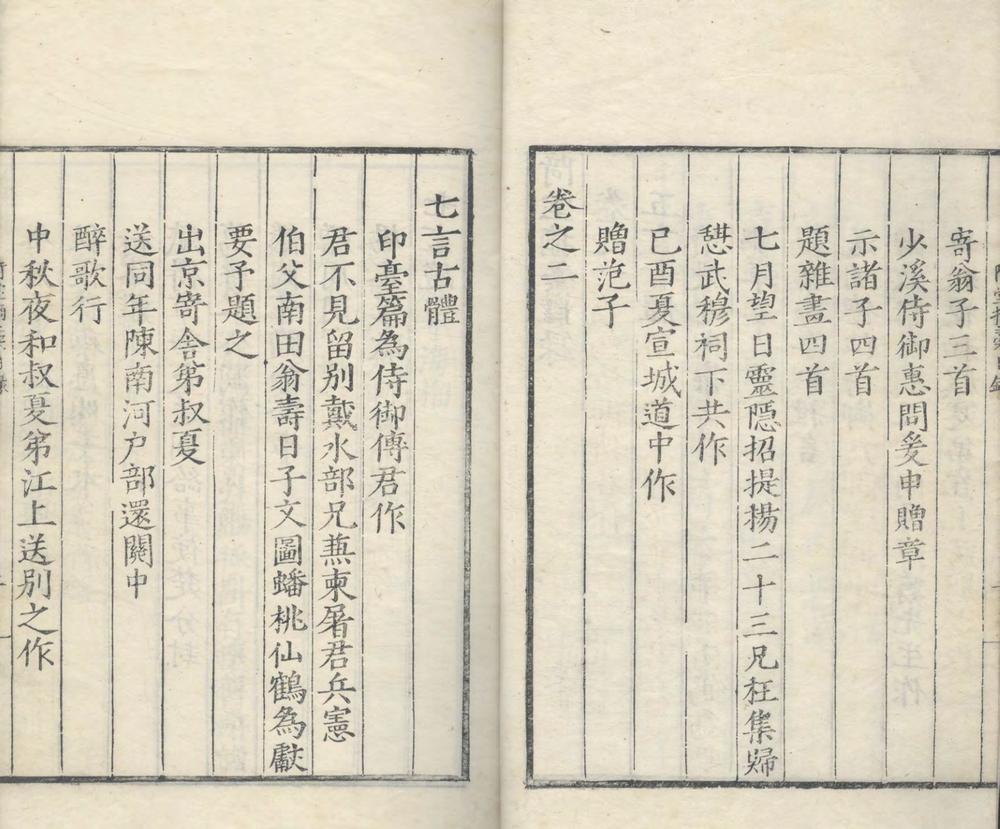 寄翁子三首
少溪侍御惠問爰申贈章
示諸子四首
題雜畫四首
七月望日靈隱招提揚二十三兄枉集歸
憇武穆祠下共作
己酉夏宣城道中作
贈范子
卷之二
七言古體
印臺篇為侍御傅君作
君不見留別戴水部兄蕪柬屠君兵憲
伯父南田翁壽日子文圖蟠桃仙鶴為獻
要予題之
出京寄舎第叔夏
送同年陳南河户部還關中
醉歌行
中秋夜和叔夏第江上送別之作